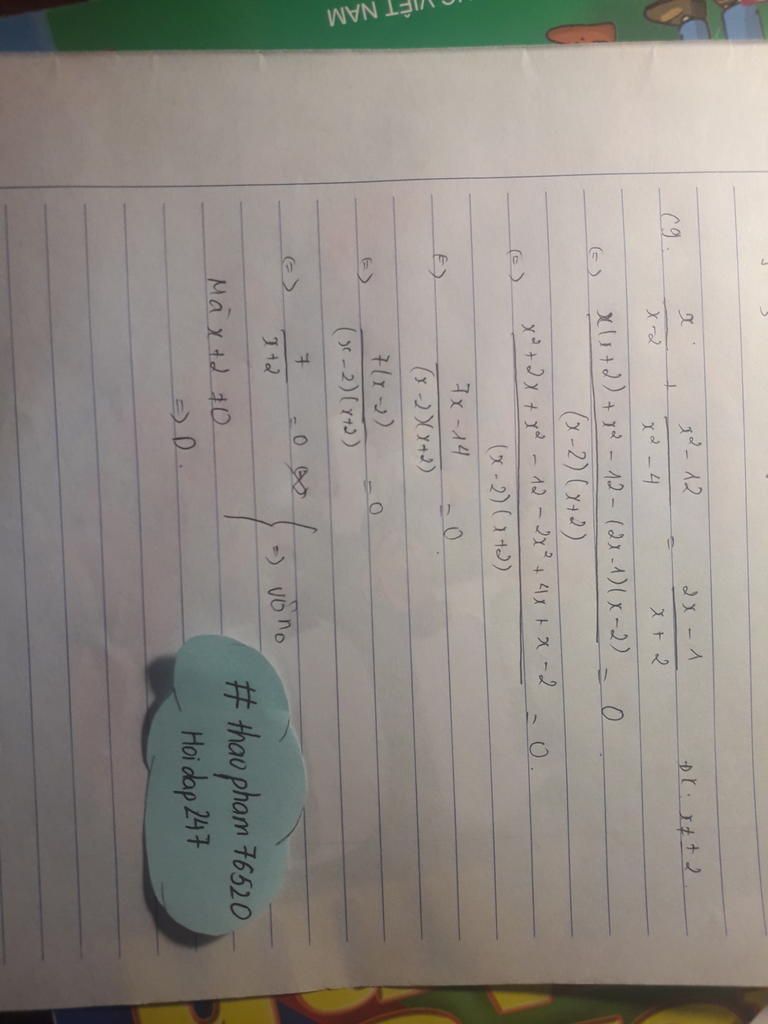 VIỆT NAM
C9: x/(x-2) + (x² - 12)/(x² - 4) = (2x - 1)/(x + 2) ĐK: x ≠ ± 2
(=) (x(x+2) + x² - 12 - (2x-1)(x-2))/((x-2)(x+2)) = 0
(=) (x² + 2x + x² - 12 - 2x² + 4x + x - 2)/((x-2)(x+2)) = 0.
(=) (7x - 14)/((x-2)(x+2)) = 0
(=) 7(x-2)/((x-2)(x+2)) = 0
(=) 7/(x+2) = 0
=> vô no
Mà x+2 ≠ 0
=> D.
# thao pham 76520
Hoidap 247